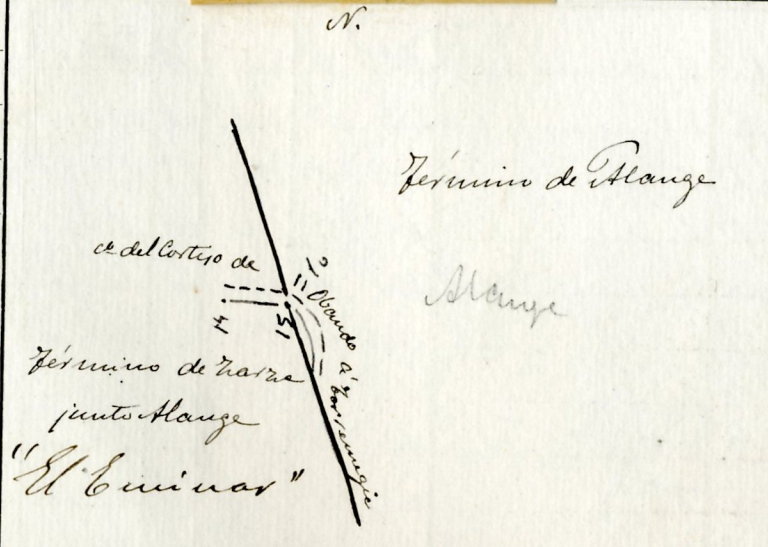 N.
Término de Alange
cº del Cortijo de
Obando á Torremegía
Alange
4
15
Término de Zarza
junto Alange
"El Encinar"